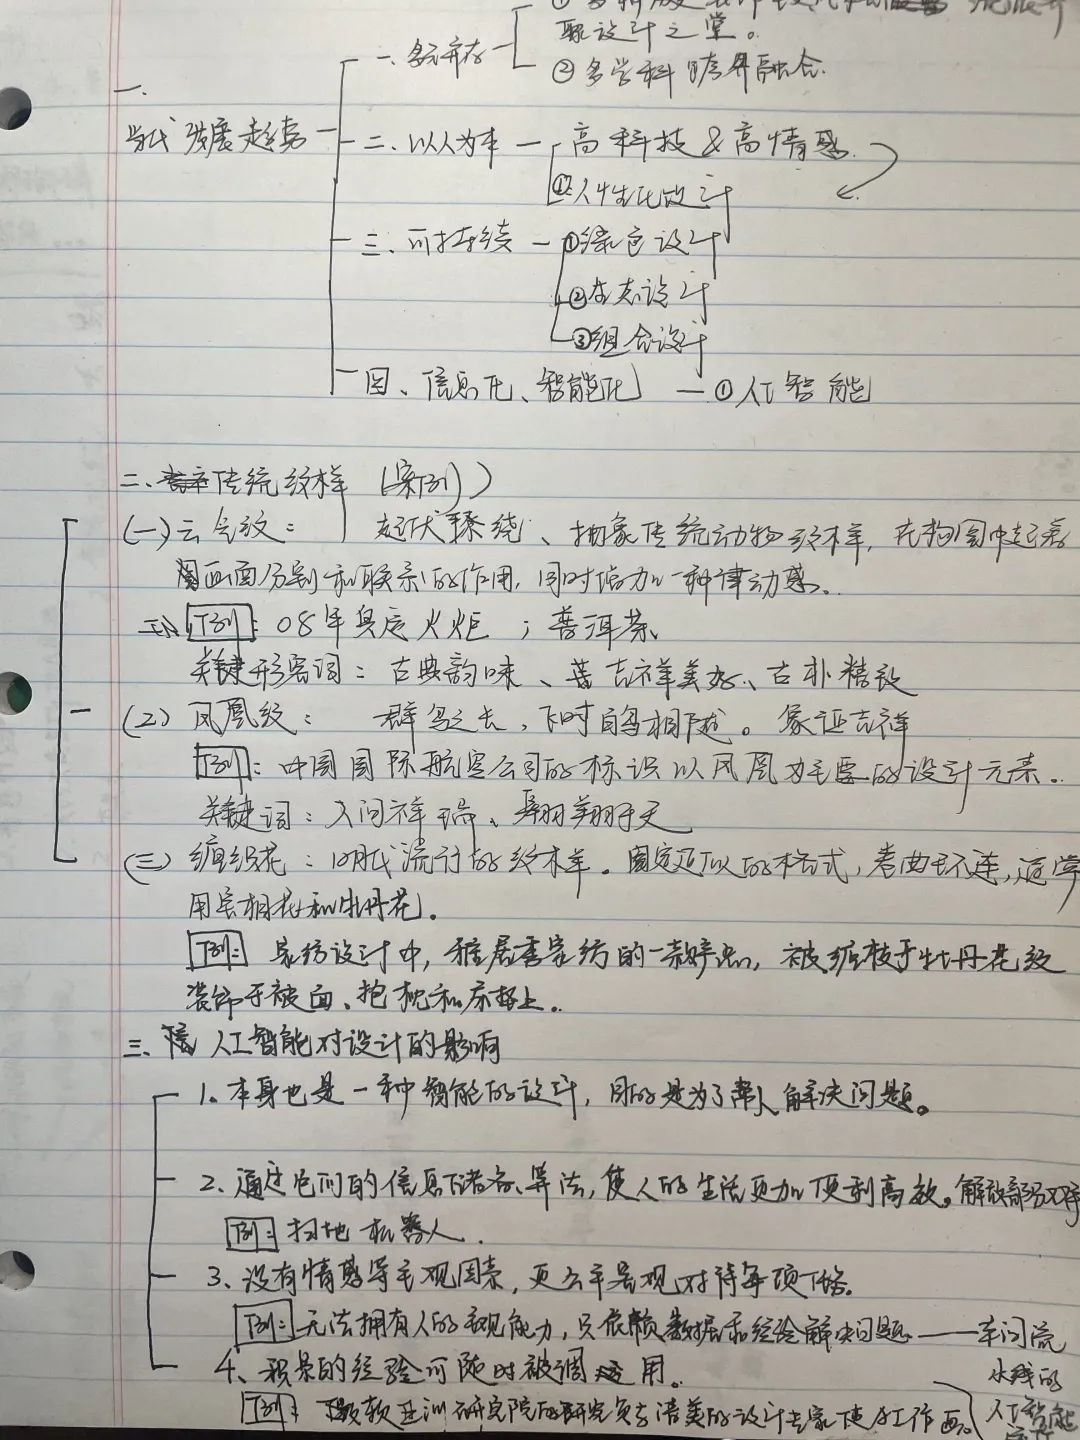 联设计之堂。
一、多元并存
②多学科跨界融合.
一.
当代发展趋势
二、以人为本 — 高科技&高情感.
①人性化设计
三、可持续 — ①绿色设计
②生态设计
③组合设计
四、信息化、智能化 — ①人工智能
二、传统纹样(案例)
(一)云气纹: 起伏缭绕、抽象传统动物纹样, 在构图中起着
画面分割和联系的作用, 同时增加一种律动感.
例: 08年奥运火炬 ; 普洱茶、
关键形容词: 古典韵味、吉祥美好、古朴精致
(2) 凤凰纹: 群鸟之长, 飞时百鸟相随。象征吉祥
例: 中国国际航空公司的标识以凤凰为主要的设计元素.
关键词: 人间祥瑞、翱翔于天
(三) 缠织花: 明代流行的纹样. 固定近似的格式, 卷曲环连, 通常
用宝相花和牡丹花.
例: 家纺设计中, 雅居季家纺的一款, 被缠枝于牡丹花纹
装饰于被面、抱枕和床搭上.
三、人工智能对设计的影响
1. 本身也是一种智能的设计, 目的是为了帮人解决问题。
2、通过它们的信息储存、算法, 使人的生活更加便利高效。解放部分双手
例: 扫地机器人.
3、没有情感等主观因素, 更公平客观对待每项任务.
例: 无法拥有人的表现能力, 只依赖数据和经验解决问题 —— 车间流
4、积累的经验可随时被调运用. 水线的
例: 微软亚洲研究院的研究负责语美的设计专家使 工作 人工智能